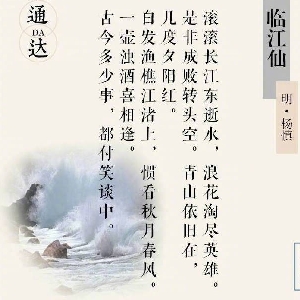 临江仙
明·杨慎
滚滚长江东逝水，浪花淘尽英雄。
是非成败转头空。青山依旧在，
几度夕阳红。
白发渔樵江渚上，惯看秋月春风。
一壶浊酒喜相逢。
古今多少事，都付笑谈中。
通
DA
达